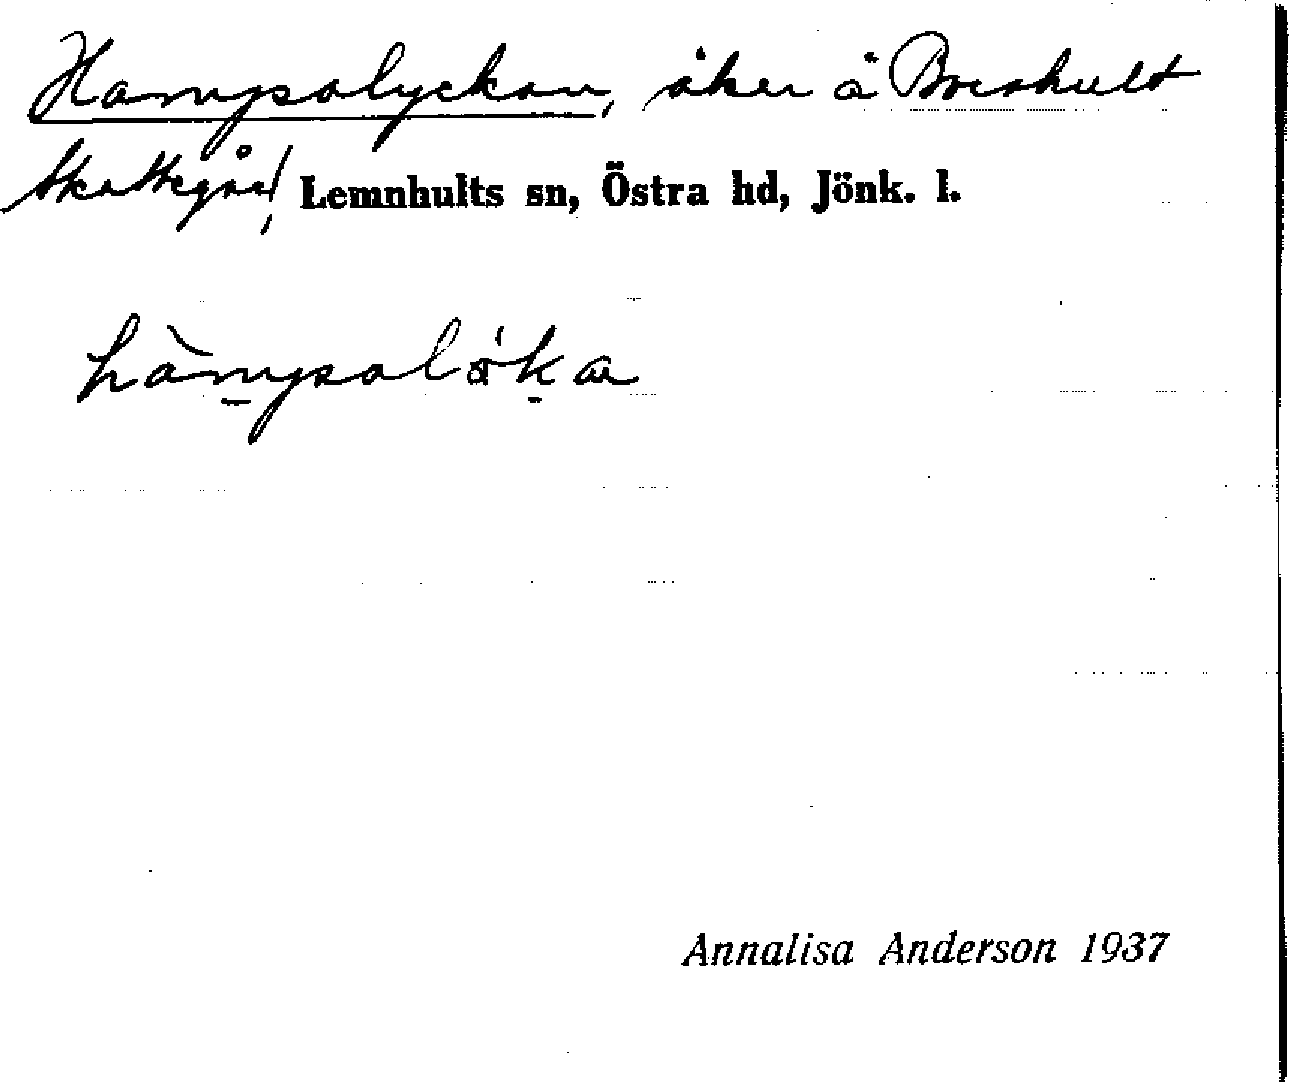 Hampsalyckan, åker å Broshult
Skattegård, Lemnhults sn, Östra hd, Jönk. l.
hàmpsalö́ka
Annalisa Anderson 1937